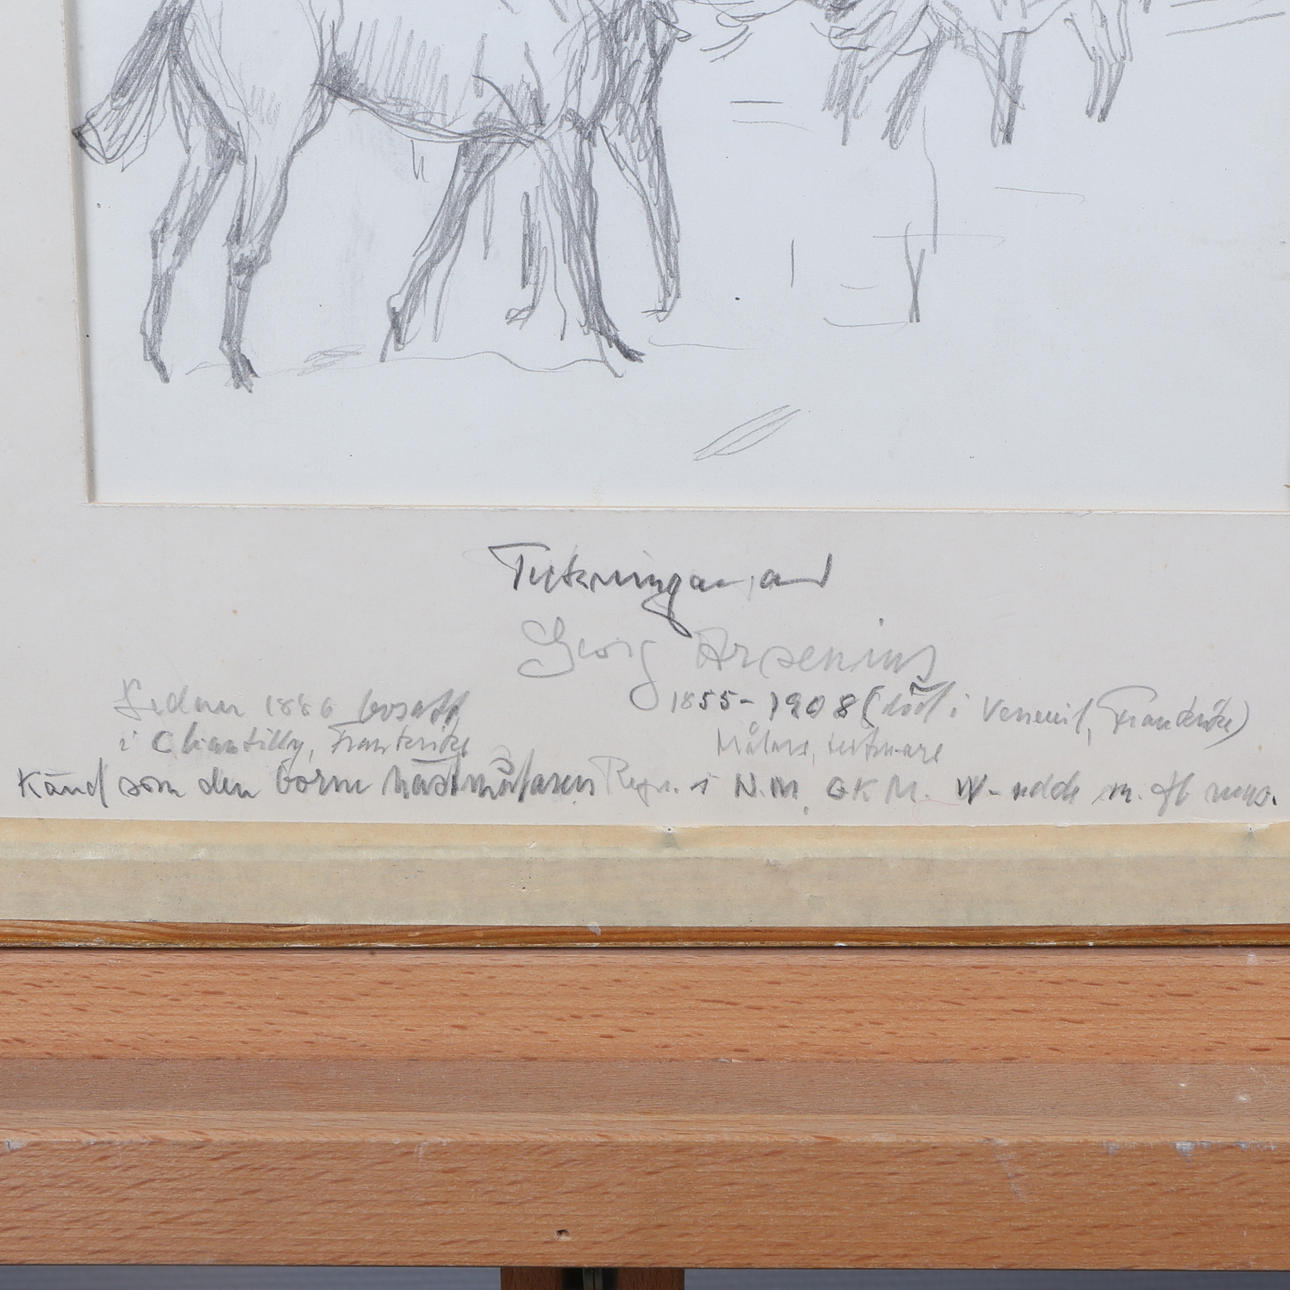 Teckningar av
Georg Arsenius
1855-1908 (död i Verneuil, Frankrike)
Målare, tecknare
Sedan 1886 bosatt
i Chantilly, Frankrike
Känd som den borne hästmålaren Repr. i N.M, GKM. m. fl mus.